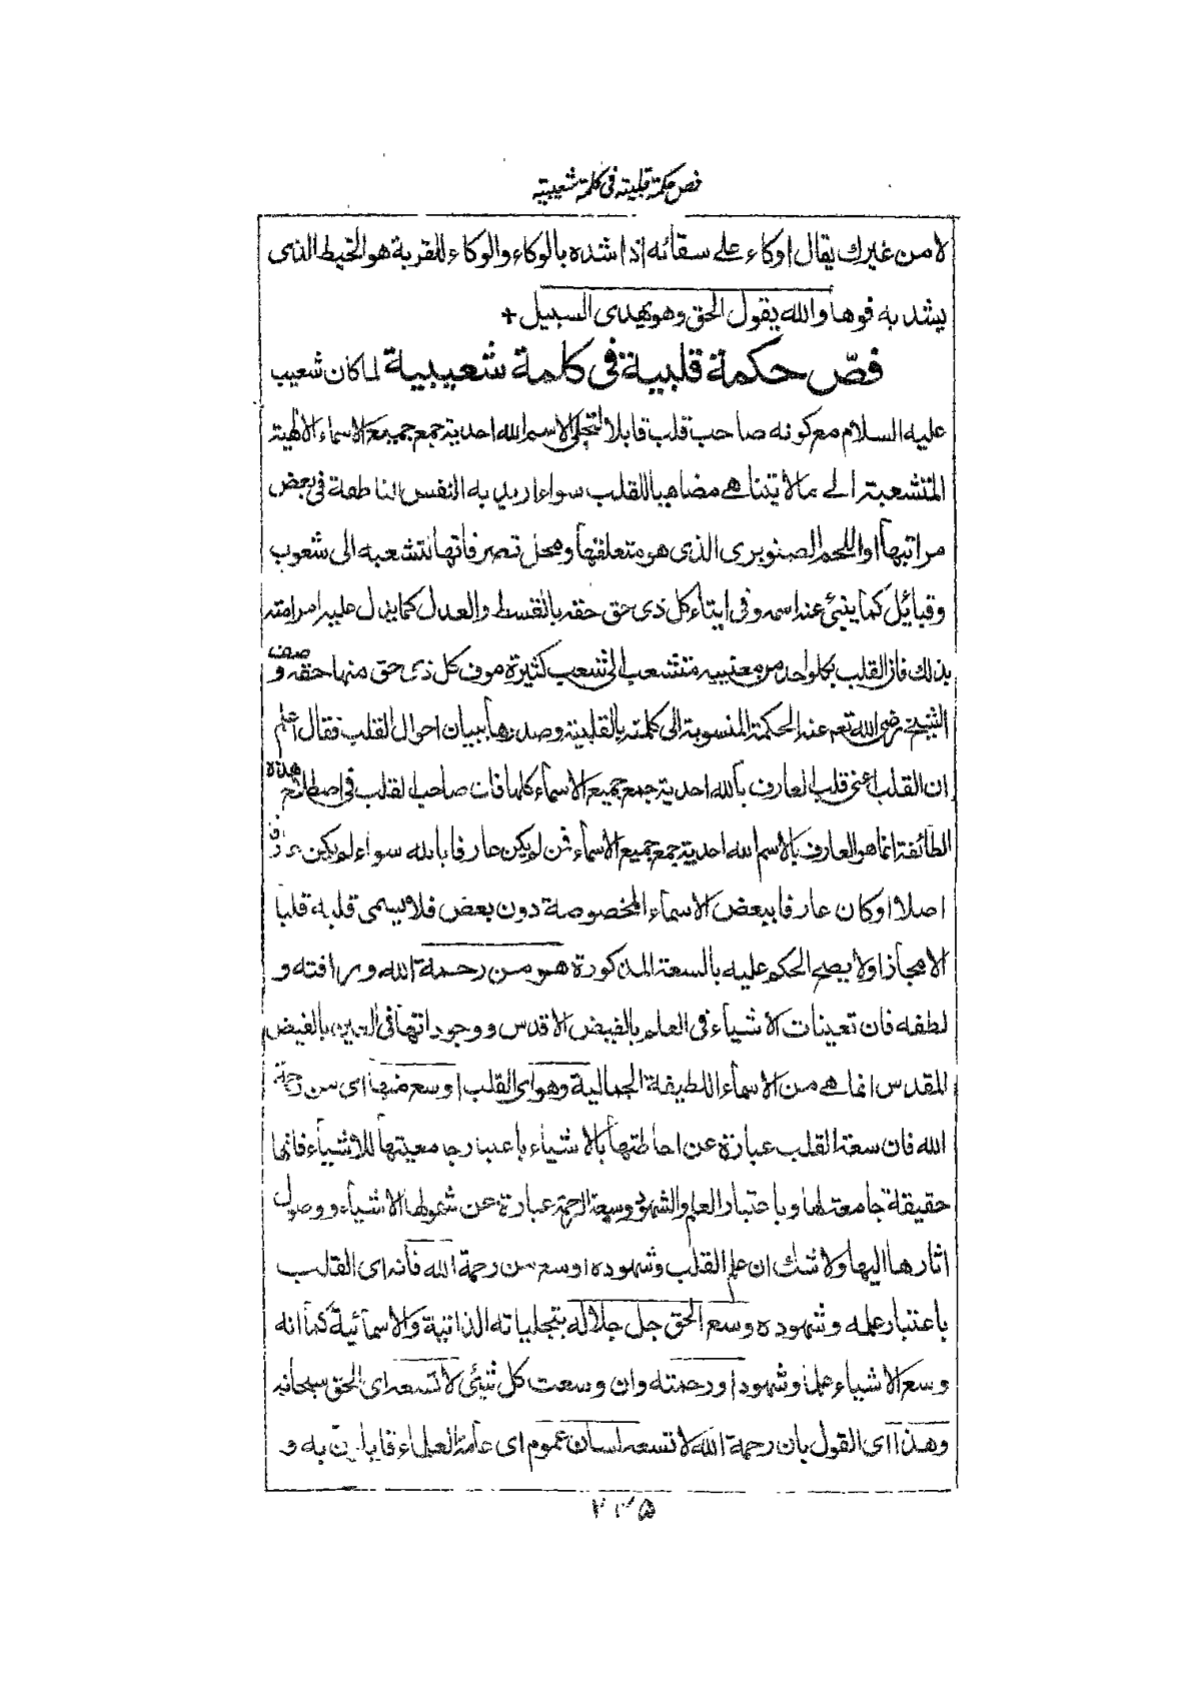 فص حكمة قلبية فى كلمة شعيبية
لا من غيرك يقال اوكاء على سقائه اذا شده بالوكاء والوكاء للقربة هو الخيط الذى
يشد به فوها والله يقول الحق وهو يهدى السبيل +
فصّ حكمة قلبية فى كلمة شعيبية لما كان شعيب
عليه السلام مع كونه صاحب قلب قابلا لتجلى الاسم الله احدية جمع جميع الاسماء الالهية
المتشعبة الى ما لا يتناهى مضاهيا للقلب سواء اريد به النفس الناطقة فى بعض
مراتبها او اللحم الصنوبرى الذى هو متعلقها ومحل تصرفاتها لتشعبه الى شعوب
وقبائل كما ينبئ عنه اسمه وفى ايتاء كل ذى حق حقه بالقسط والعدل كما يدل عليه امر امته
بذلك فان القلب بكل واحد من معنييه متشعب الى شعب كثيرة موف كل ذى حق منها حقه وصف
الشيخ رضى الله تعه عنه الحكمة المنسوبة الى كلمته بالقلبية وصدرها ببيان احوال القلب فقال اعلم
ان القلب اعنى قلب العارف بالله احدية جمع جميع الاسماء كلها فان صاحب القلب فى اصطلاح هذه
الطائفة انما هو العارف بالاسم الله احدية جمع جميع الاسماء فمن لم يكن عارفا بالله سواء لم يكن عارفا
اصلا او كان عارفا ببعض الاسماء المخصوصة دون بعض فلا يسمى قلبه قلبا
الا مجازا ولا يصح الحكم عليه بالسعة المذكورة هو من رحمة الله وبرافته و
لطفه فان تعينات الاشياء فى العلم بالفيض الاقدس ووجوداتها فى العين بالفيض
المقدس انما هى من الاسماء اللطيفة الجمالية وهو اى القلب اوسع منها اى من رحمة
الله فان سعة القلب عبارة عن احاطتها بالاشياء باعتبار جامعيتها للاشياء فانها
حقيقة جامعة لها وباعتبار العلم والشهود وسعة الرحمة عبارة عن شمولها الاشياء ووصول
اثارها اليها ولا شك ان علم القلب وشهوده اوسع من رحمة الله فانه اى القلب
باعتبار علمه وشهوده وسع الحق جل جلاله بتجلياته الذاتية والاسمائية كما انه
وسع الاشياء علما وشهودا ورحمته وان وسعت كل شئ لا تسعه اى الحق سبحانه
وهذا اى القول بان رحمة الله لا تسعه لسان عموم اى عامة العلماء قايلين به و